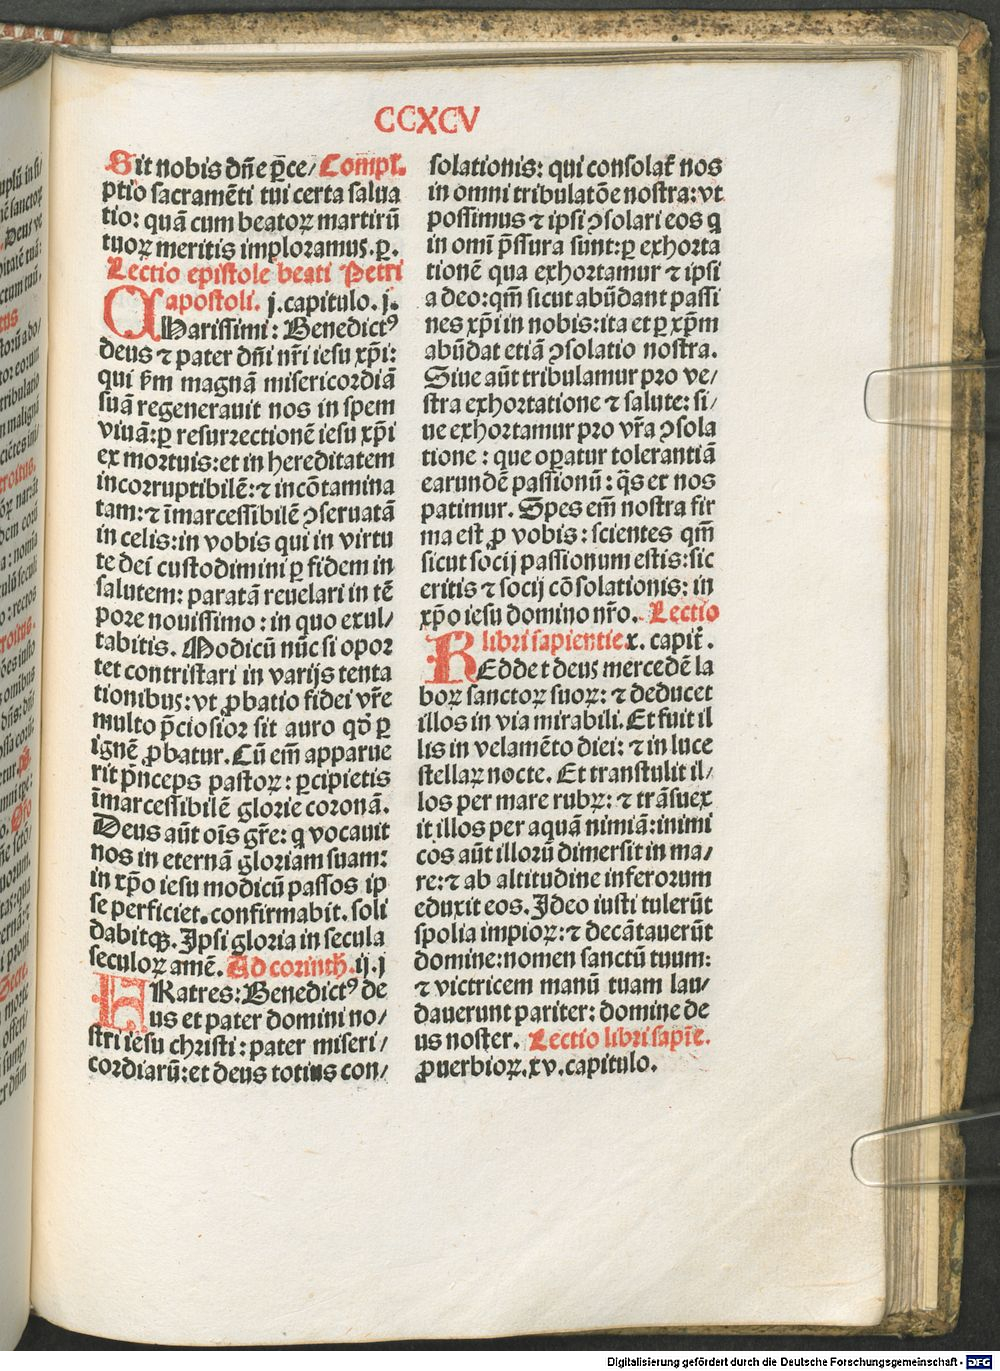 CCXCV
Sit nobis dñe p̄ce/ Compl̄.
ptio sacramēti tui certa salua
tio: quā cum beatoꝝ martirū
tuoꝝ meritis imploramus. ꝑ.
Lectio epistole beati Petri
apostoli. j. capitulo. j.
CHarissimi: Benedictꝰ
deus ⁊ pater dñi nr̄i iesu xp̄i:
qui ẜm magnā misericordiā
suā regenerauit nos in spem
viuā: ꝑ resurrectionē iesu xp̄i
ex mortuis: et in hereditatem
incorruptibilē: ⁊ incōtamina
tam: ⁊ īmarcessibilē ꝯseruatā
in celis: in vobis qui in virtu
te dei custodimini ꝑ fidem in
salutem: paratā reuelari in tē
pore nouissimo: in quo exul/
tabitis. Modicū nūc si opor
tet contristari in varijs tenta
tionibus: vt ꝓbatio fidei vr̄e
multo p̄ciosior sit auro qd̄ ꝑ
ignē ꝓbatur. Cū em̄ apparue
rit p̄nceps pastoꝝ: ꝑcipietis
īmarcessibilē glorie coronā.
Deus aūt oīs gr̄e: q vocauit
nos in eternā gloriam suam:
in xp̄o iesu modicū passos ip
se perficiet. confirmabit. soli
dabitqꝫ. Ipsi gloria in secula
seculoꝝ amē. Ad corinth̄. ij. j
FRatres: Benedictꝰ de
us et pater domini no/
stri iesu christi: pater miseri/
cordiarū: et deus totius con/
solationis: qui consolat̄ nos
in omni tribulatōe nostra: vt
possimus ⁊ ipsi ꝯsolari eos q
in omī p̄ssura sunt: ꝑ exhorta
tionē qua exhortamur ⁊ ipsi
a deo: qm̄ sicut abūdant passi
nes xp̄i in nobis: ita et ꝑ xp̄m
abūdat etiā ꝯsolatio nostra.
Siue aūt tribulamur pro ve/
stra exhortatione ⁊ salute: si/
ue exhortamur pro vr̄a ꝯsola
tione: que oꝑatur tolerantiā
earundē passionū: q̄s et nos
patimur. Spes em̄ nostra fir
ma est ꝓ vobis: scientes qm̄
sicut socij passionum estis: sic
eritis ⁊ socij cōsolationis: in
xp̄o iesu domino nr̄o. Lectio
libri sapientie. x. capit̄.
REddet deus mercedē la
boꝝ sanctoꝝ suoꝝ: ⁊ deducet
illos in via mirabili. Et fuit il
lis in velamēto diei: ⁊ in luce
stellaꝝ nocte. Et transtulit il/
los per mare rubꝝ: ⁊ trāsuex
it illos per aquā nimiā: inimi
cos aūt illorū dimersit in ma/
re: ⁊ ab altitudine inferorum
eduxit eos. Ideo iusti tulerūt
spolia impioꝝ: ⁊ decātauerūt
domine: nomen sanctū tuum:
⁊ victricem manū tuam lau/
dauerunt pariter: domine de
us noster. Lectio libri sapiē.
ꝓuerbioꝝ. xv. capitulo.
Digitalisierung gefördert durch die Deutsche Forschungsgemeinschaft - DFG